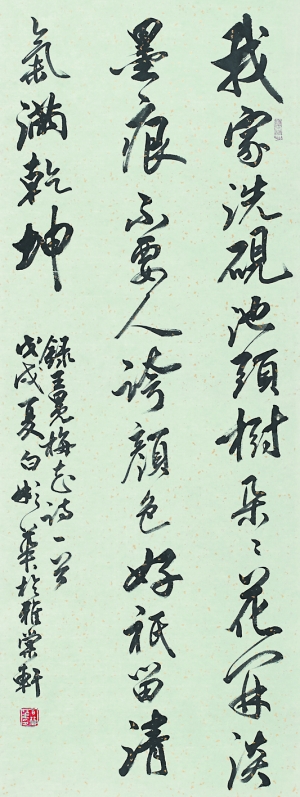 我家洗硯池頭樹朵〻花開淡
墨痕不要人誇顏色好祇留清
氣滿乾坤
錄王冕梅花詩一首
戊戌夏白華於雅棠軒